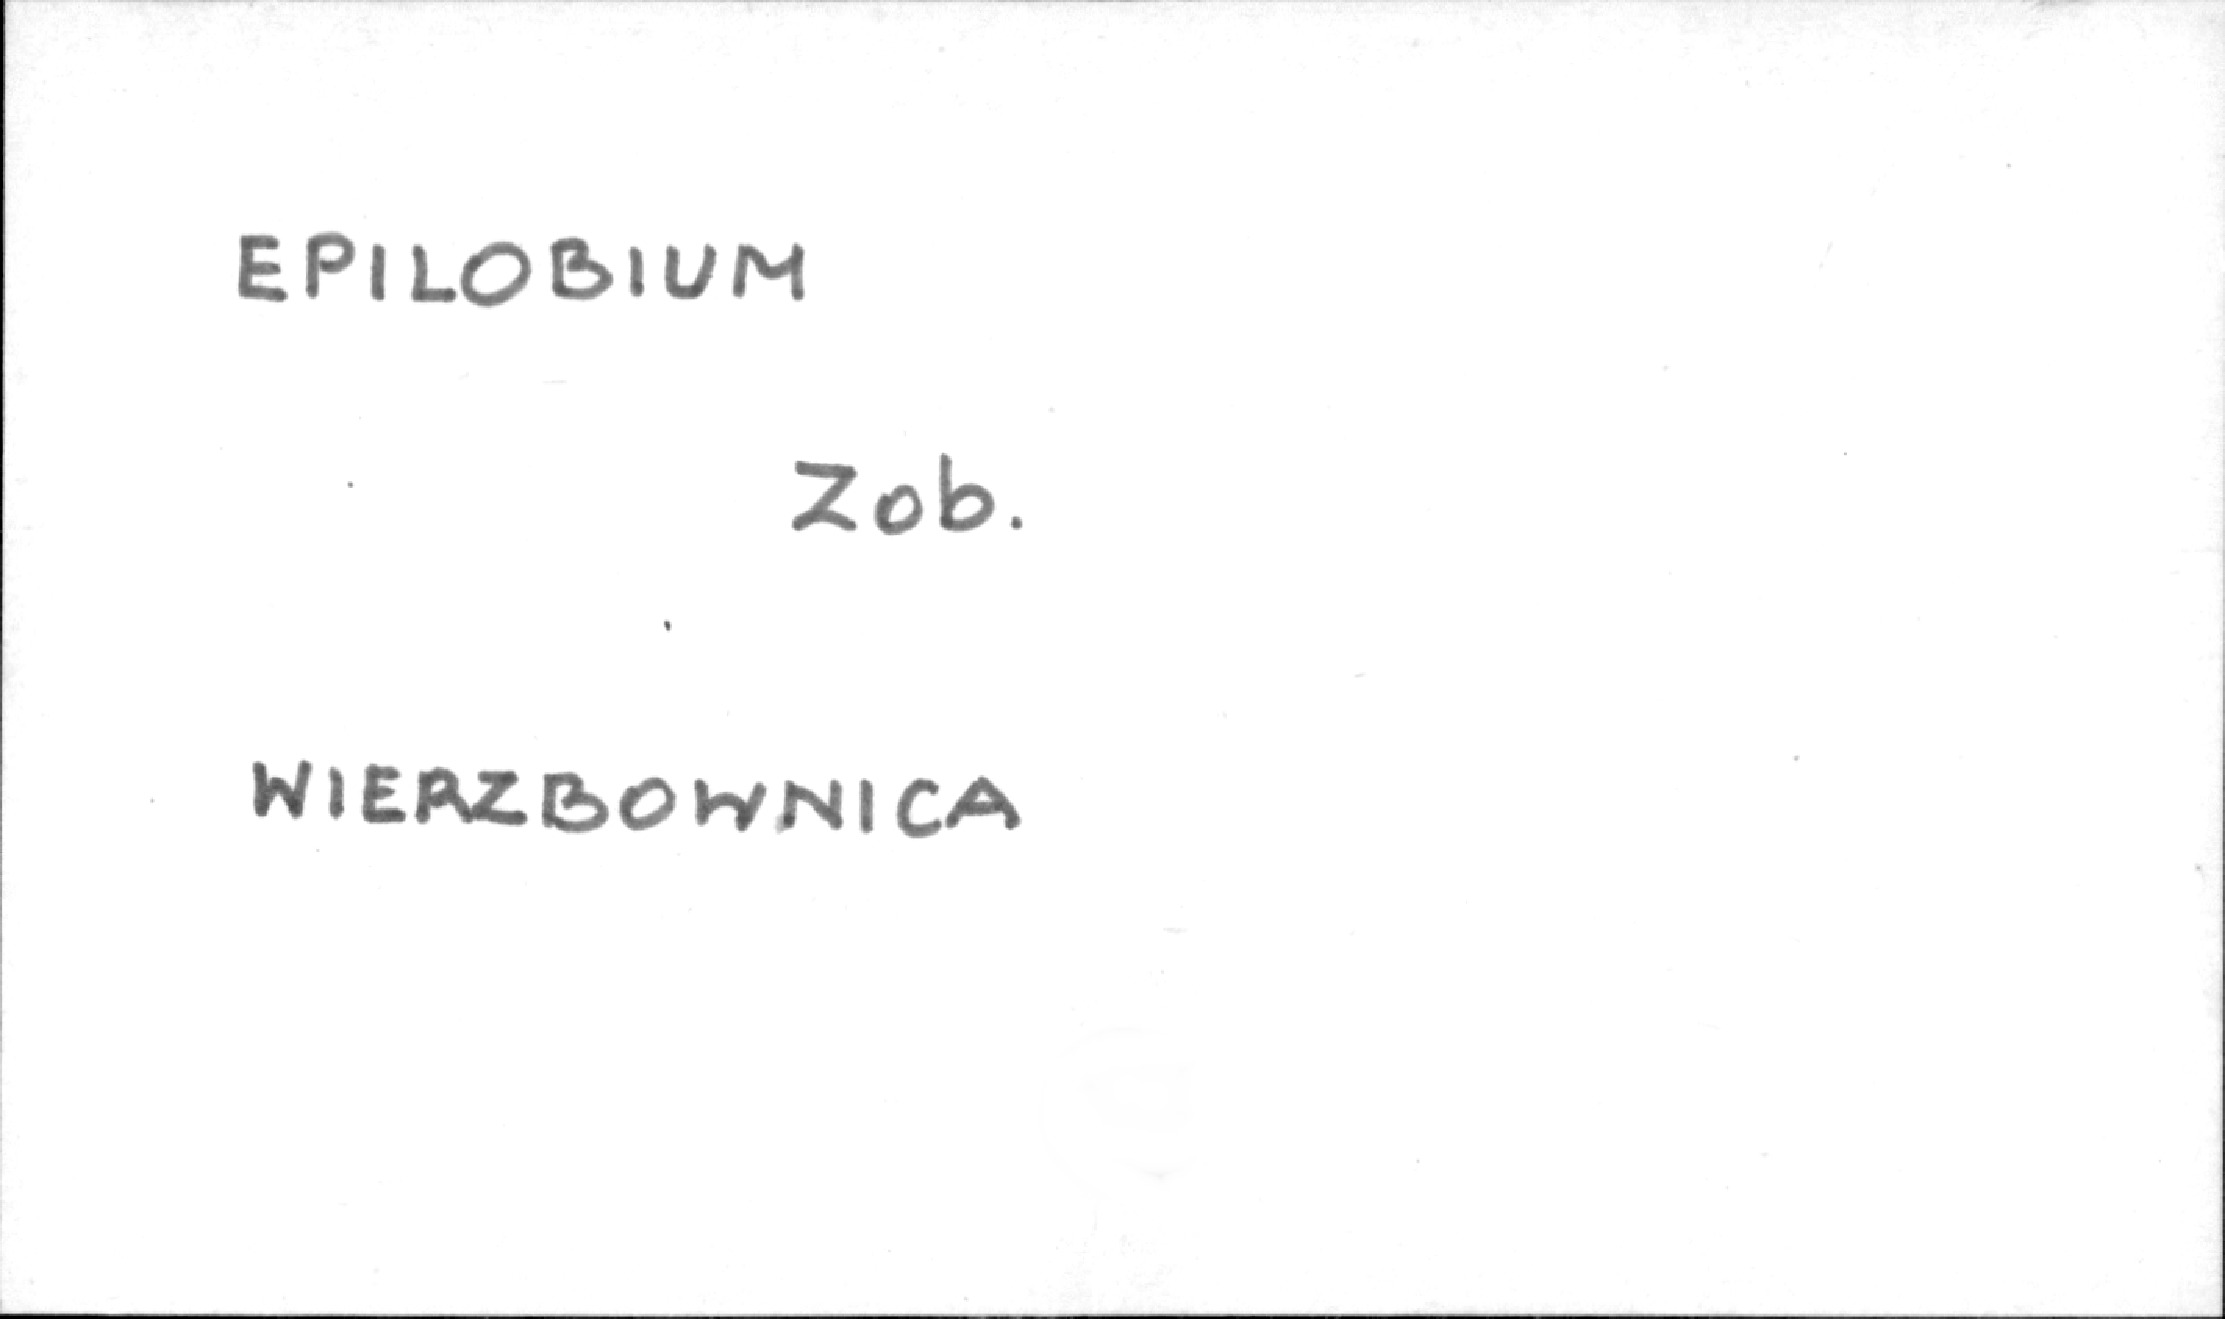 EPILOBIUM
Zob.
WIERZBOWNICA